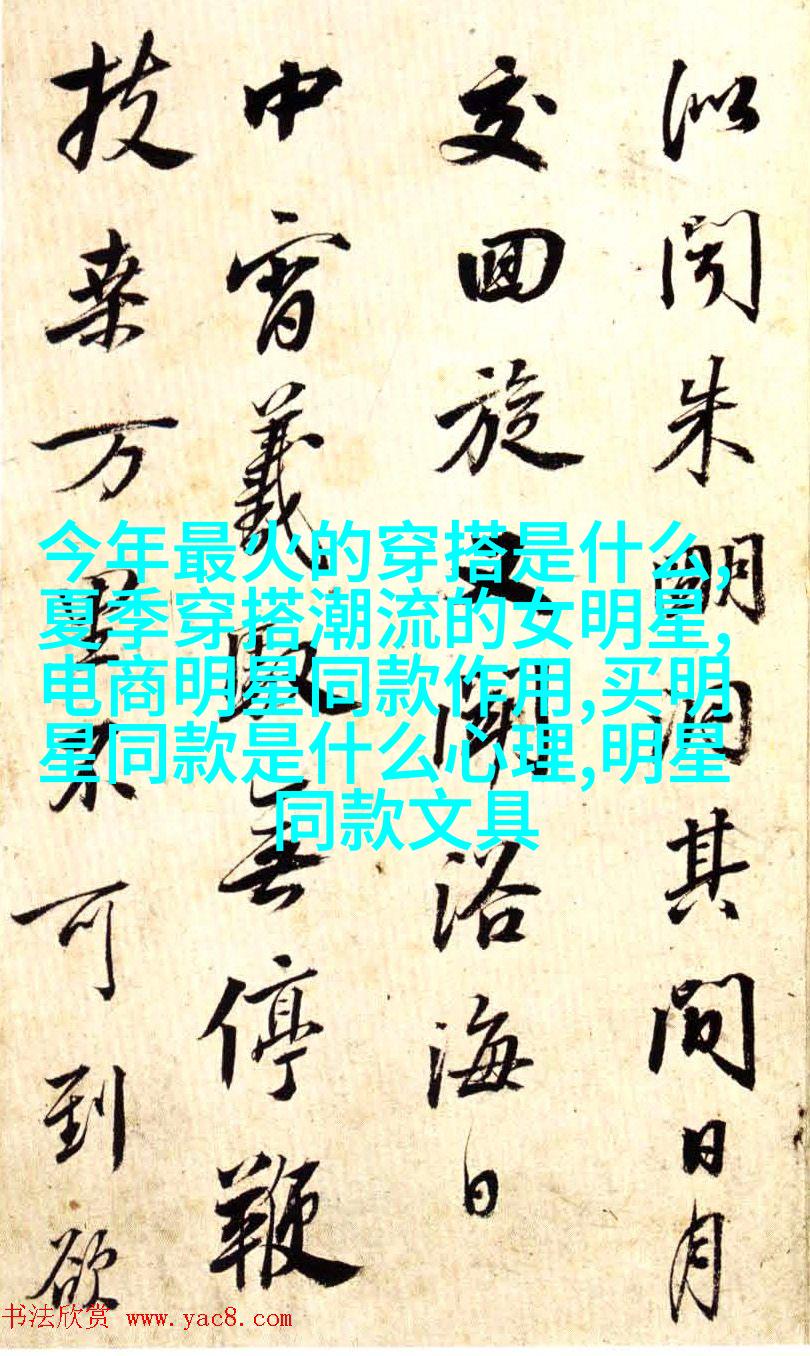 似闻朱明洞其間日月
交囬旋又聞浴海日
中宵羲馭無停鞭
扶桒万里不可到欲
今年最火的穿搭是什么,
夏季穿搭潮流的女明星,
电商明星同款作用,买明
星同款是什么心理,明星
同款文具
书法欣赏 www.yac8.com